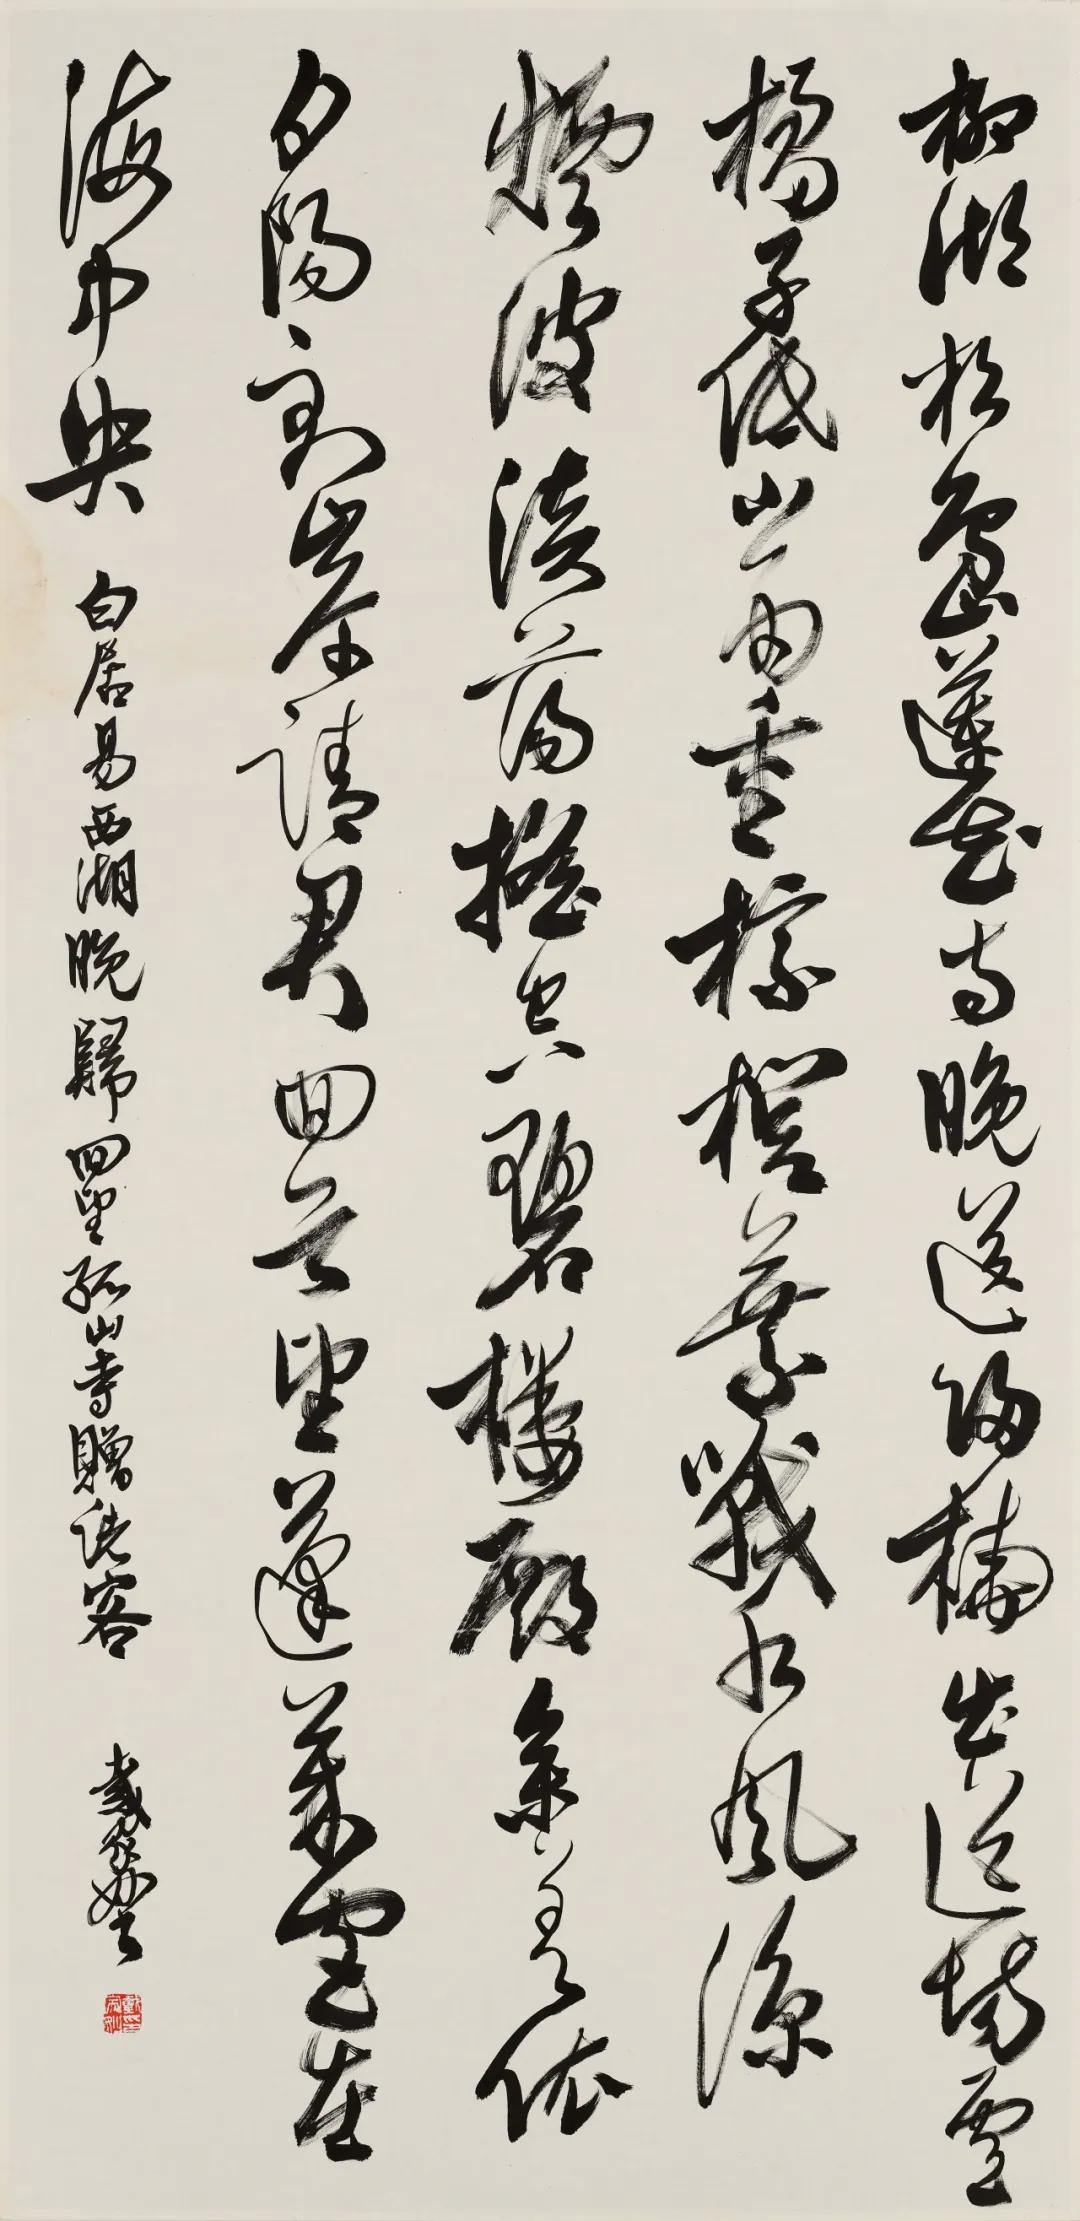 柳湖松島蓮花寺晚送歸橈出道場盧
橘子低山雨重棕櫚葉戰水風涼
煙波淡蕩搖空碧樓殿參差依
夕陽到岸請君回首望蓬萊宮在
海中央 白居易西湖晚歸回望孤山寺贈諸客 戴家妙書